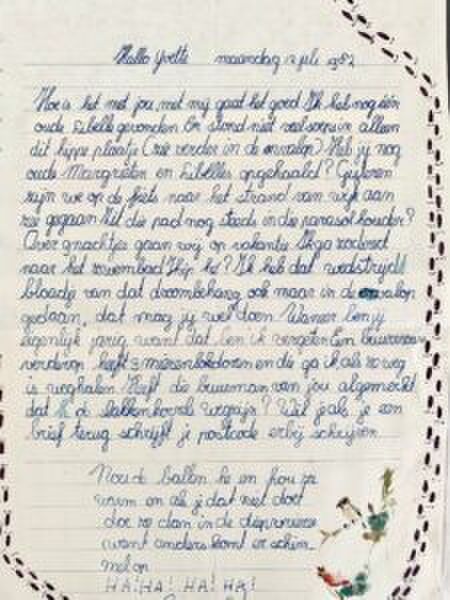 Hallo Yvette maandag 12 juli 1982
Hoe is het met jou, met mij gaat het goed. Ik heb nog één
oude Libelle gevonden. Er stond niet veel soeps in alleen
dit kippe plaatje (zie verder in de envelop). Heb jij nog
oude Margrieten en Libelles opgehaald? Gisteren
zijn we op de fiets naar het strand van wijk aan
zee gegaan. Zit die pad nog steeds in die parasolhouder?
Over nachtjes gaan wij op vakantie. Ik ga
naar het zwembad. Ik heb dat wedstrijd
blaadje van dat droombehang ook maar in de envelop
gedaan, dat mag jij wel doen. Wanneer ben jij
eigenlijk jarig want dat ben ik vergeten. Een buurvrouw
verderop heeft 3 mierenlokdozen en die ga ik als ze weg
is weghalen. Heeft die buurman van jou al gemerkt
dat de weg zijn? Wil je als je een
brief terug schrijft je postcode erbij schrijven.
Hou de ballen he en hou ze
warm en als je dat niet doet
doe ze dan in de diepvriezer
want anders komt er schim-
mel op
HA! HA! HA! HA!